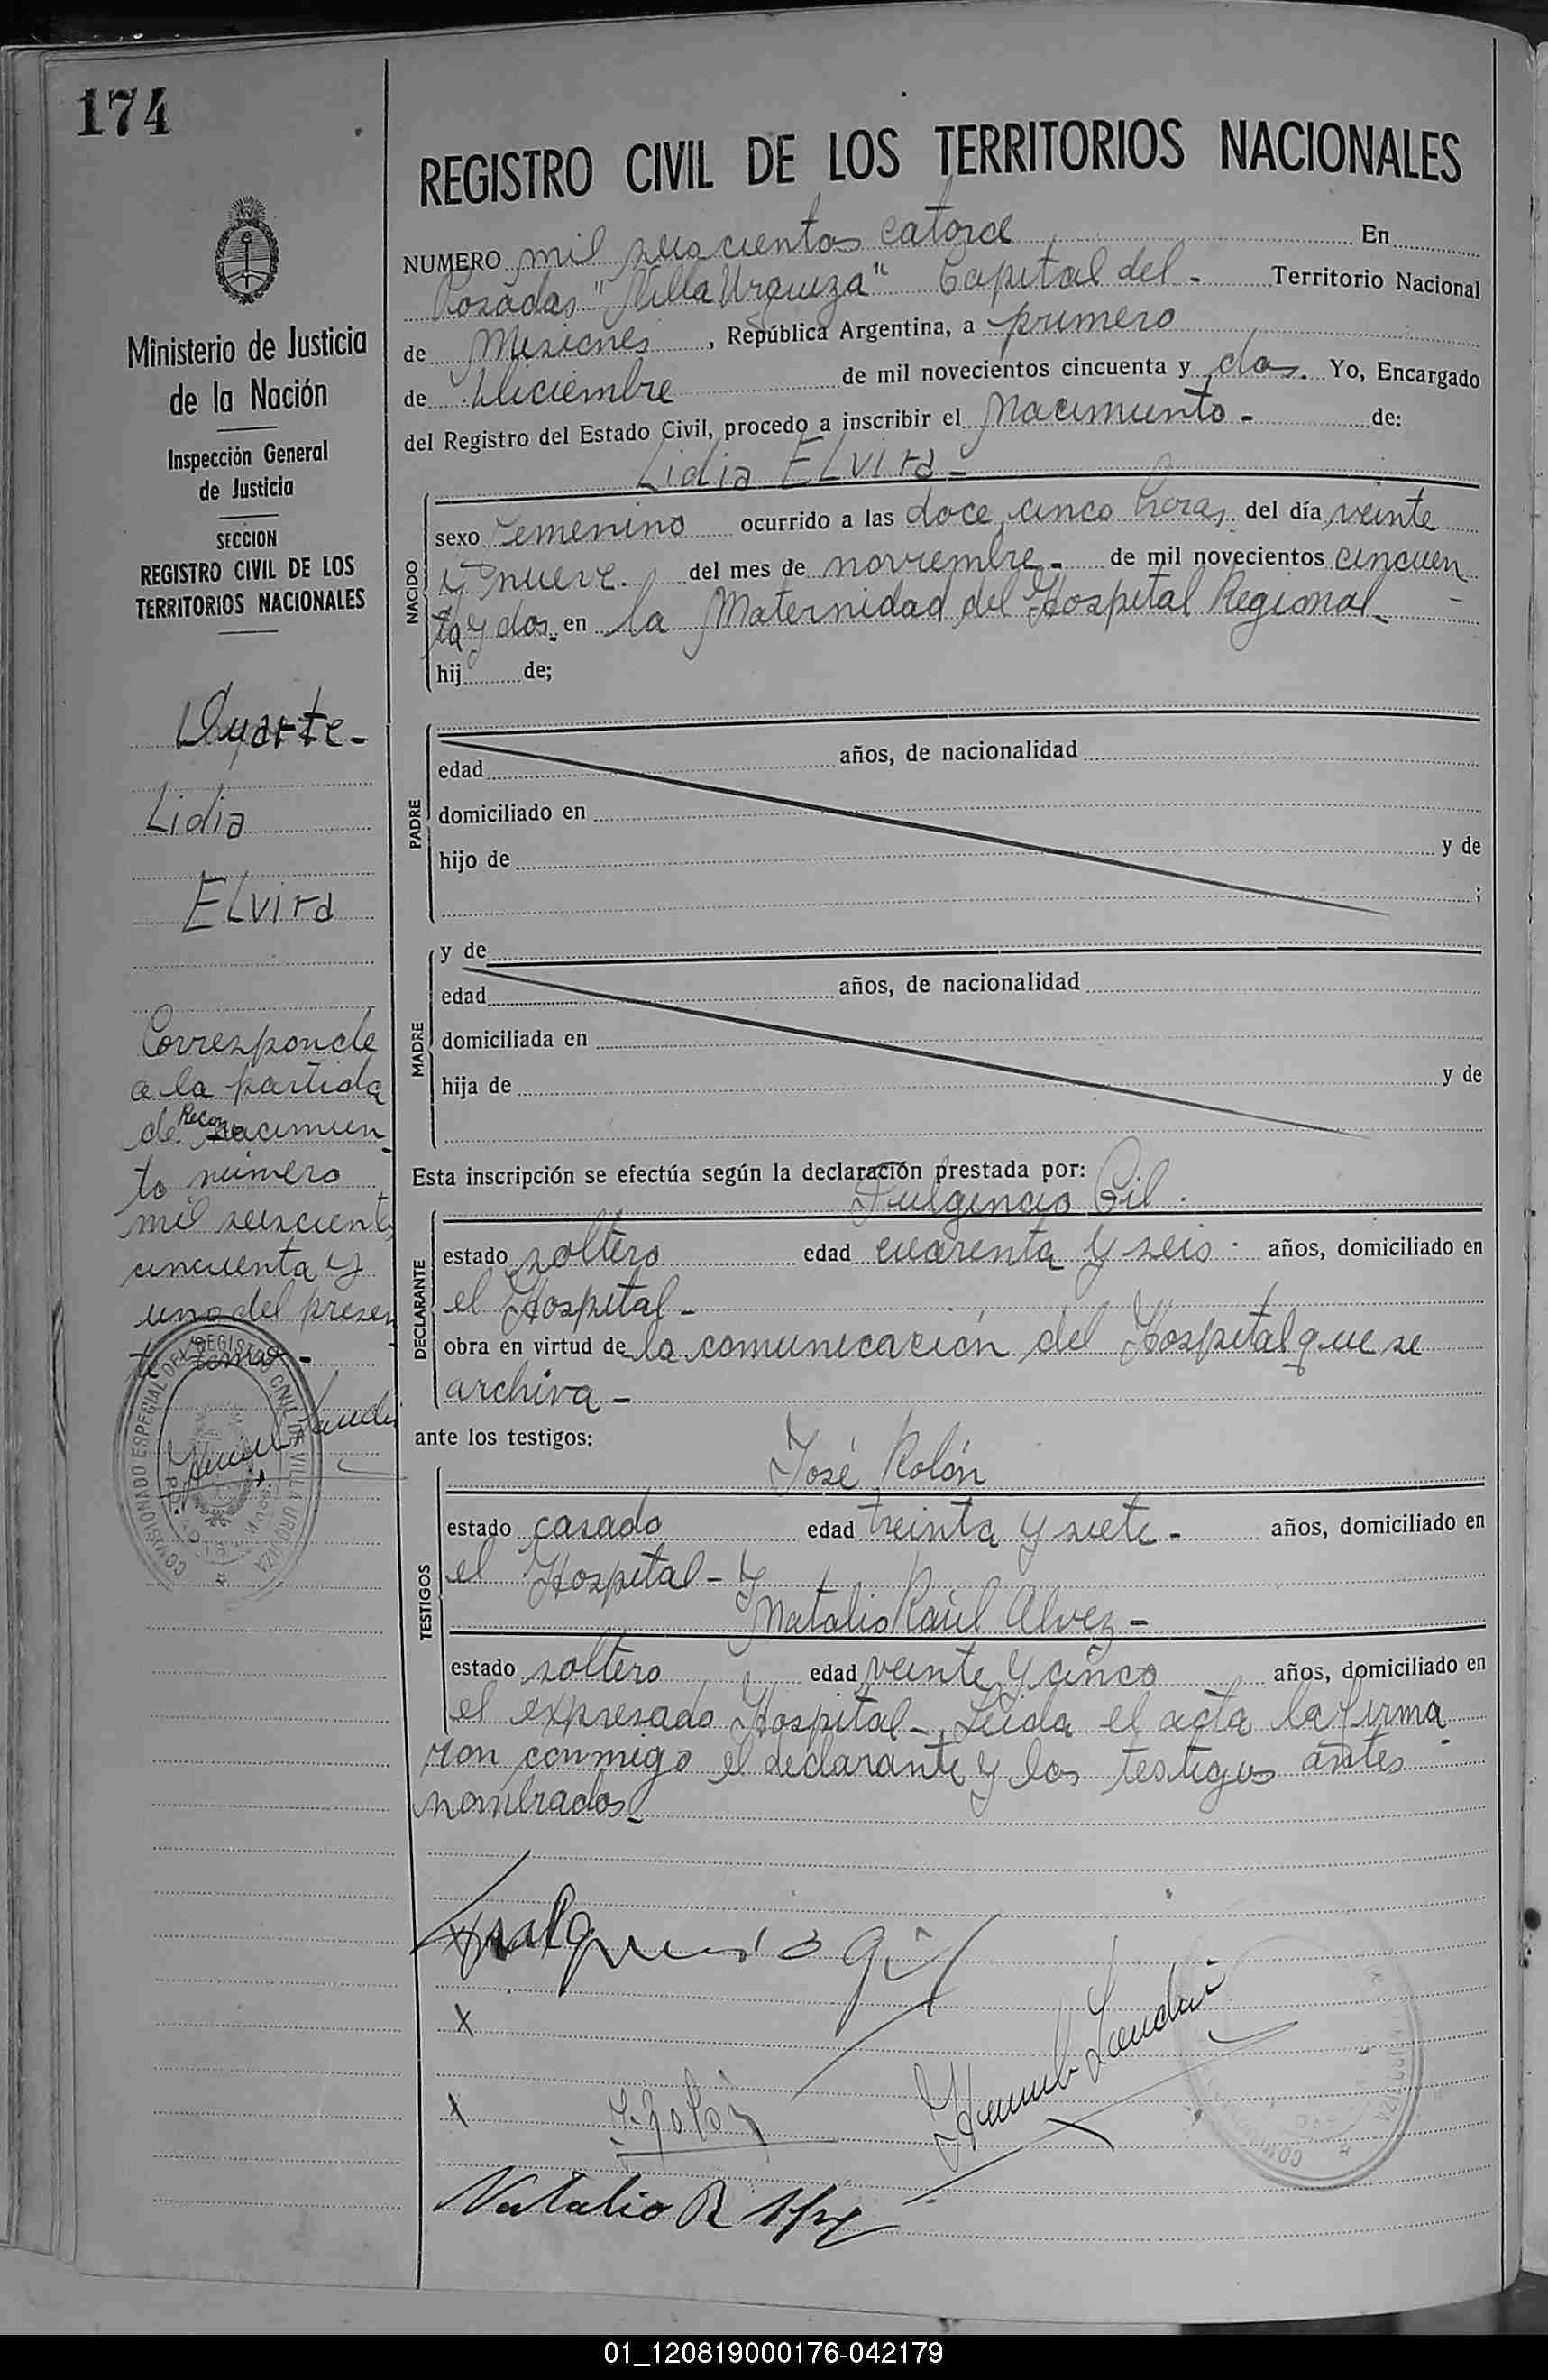 174
Ministerio de Justicia
de la Nación
Inspección General
de Justicia
SECCION
REGISTRO CIVIL DE LOS
TERRITORIOS NACIONALES
Duarte-
Lidia
ELvira
Corresponde
a la partida
de Recono
nacimien
to número
mil seiscientos
cincuenta y
uno del presen
te tomo-
COMISIONADO ESPECIAL DEL REGISTRO CIVIL DE VILLA URQUIZA
REGISTRO CIVIL DE LOS TERRITORIOS NACIONALES
NUMERO mil seiscientos catorce En
Posadas "Villa Urquiza" Capital del - Territorio Nacional
de Misiones, República Argentina, a primero
de Diciembre de mil novecientos cincuenta y dos. Yo, Encargado
del Registro del Estado Civil, procedo a inscribir el Nacimiento - de:
Lidia ELvira-
NACIDO
sexo Femenino ocurrido a las doce, cinco horas, del día veinte
y nueve. del mes de noviembre - de mil novecientos cincuen
ta y dos. en la Maternidad del Hospital Regional -
hij de;
PADRE
edad años, de nacionalidad
domiciliado en
hijo de y de
;
MADRE
y de
edad años, de nacionalidad
domiciliada en
hija de y de
Esta inscripción se efectúa según la declaración prestada por:
Fulgencio Gil -
DECLARANTE
estado soltero edad cuarenta y seis - años, domiciliado en
el Hospital -
obra en virtud de la comunicación del Hospital que se
archiva -
ante los testigos:
José Rolón
TESTIGOS
estado casado edad treinta y siete - años, domiciliado en
el Hospital - y
Natalio Raúl Alvez -
estado soltero edad veinte y cinco años, domiciliado en
el expresado Hospital - Leida el acta la firma
ron conmigo el declarante y los testigos antes
nombrados -
Fulguensio gil
x
x J. Rolón
Natalio R
01_120819000176-042179